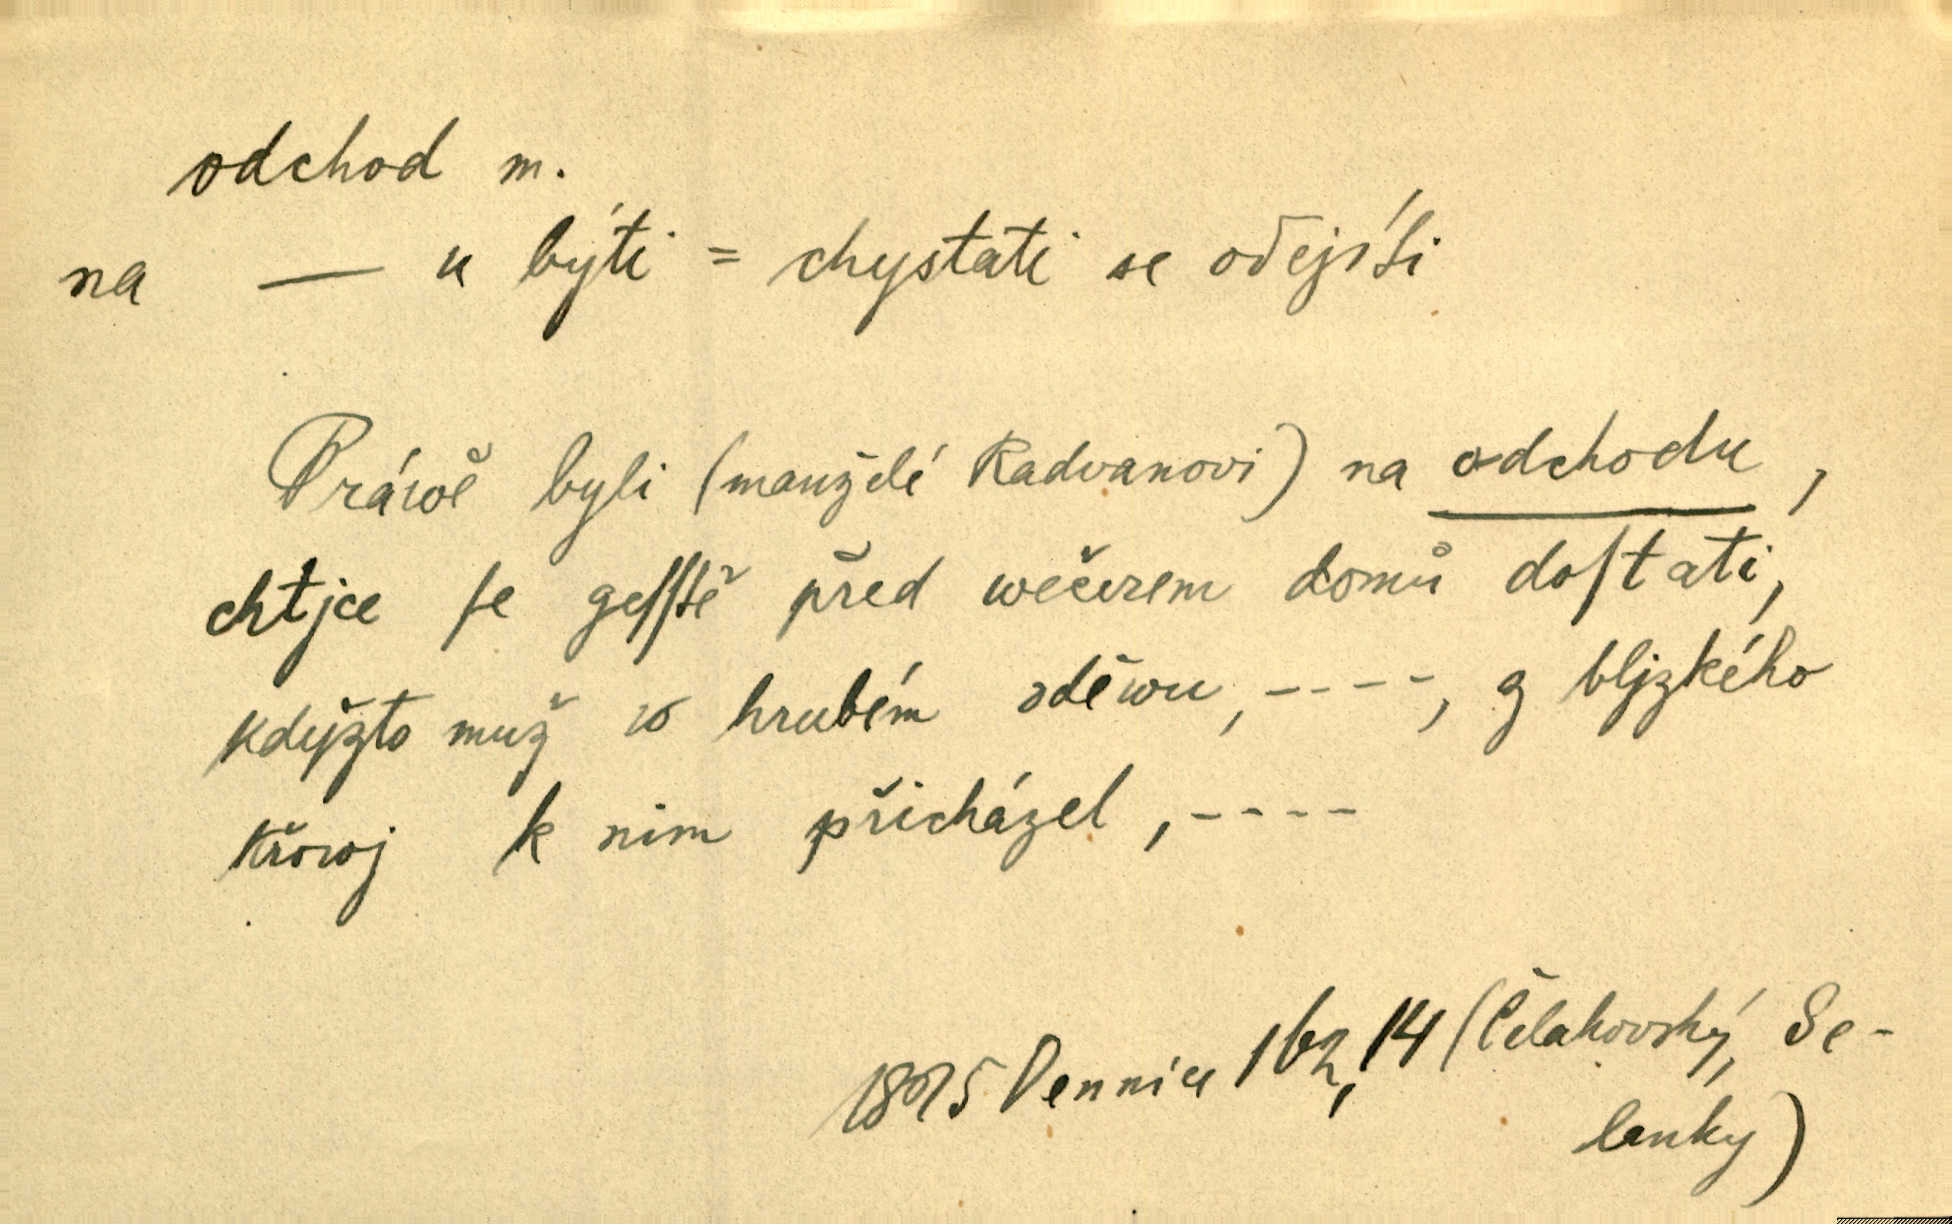 odchod m.
na — u býti = chystati se odejíti
Práwě byli (manželé Radvanovi) na odchodu,
chtjce ſe geſſtě před wečerem domů doſtati,
kdyžto muž w hrubém oděwu, ----, z bljzkého
křowj k nim přicházel, ----
Dennice 162, 14 (Čelakovský, Se-
lanky)